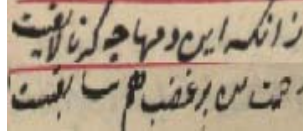 زانکه این دمها چه گر نالایقست
رحمت من بر غضب هم سابقست